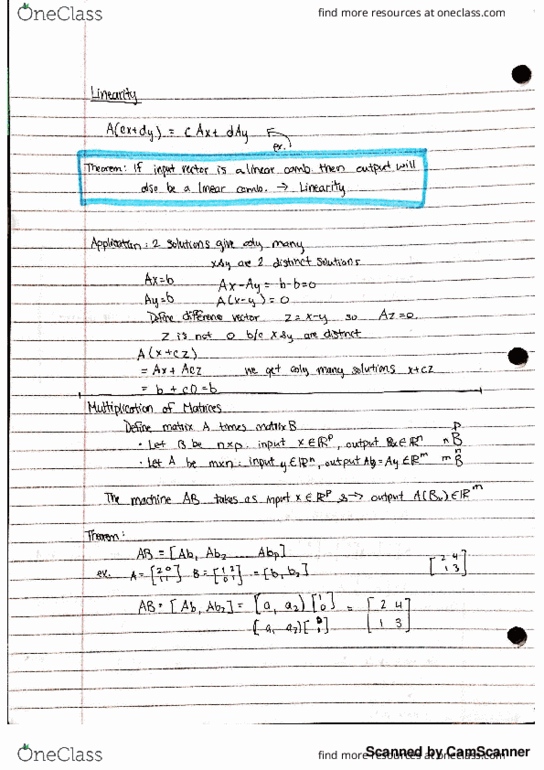 OneClass
find more resources at oneclass.com
Linearity
A(cx+dy) = c Ax + dAy
ex.
Theorem: If input vector is a linear comb. then output will
also be a linear comb. → Linearity
Application: 2 solutions give ∞ly many
x&y are 2 distinct solutions
Ax=b Ax-Ay = b-b=0
Ay=b A(x-y) = 0
Define difference vector z = x-y so Az=0.
z is not 0 b/c x&y are distinct
A(x+cz)
= Ax + Acz we get ∞ly many solutions x+cz
= b + c0 = b
Multiplication of Matrices
Define matrix A times matrix B
• Let B be n×p. input x∈ℝᵖ, output Bx∈ℝⁿ
• Let A be m×n: input y∈ℝⁿ, output Ay ∈ℝᵐ
The machine AB takes as input x∈ℝᵖ & → output A(Bx)∈ℝᵐ
Theorem:
AB = [Ab, Ab₂ Abp]
ex. A = [2 0; 1 1] B = [1 2; 0 1] = [b, b₂] [2 4; 1 3]
AB = [Ab, Ab₂] = [a, a₂][1; 0] = [2 4; 1 3]
[a, a₂]
OneClass
find more resources at oneclass.com
Scanned by CamScanner